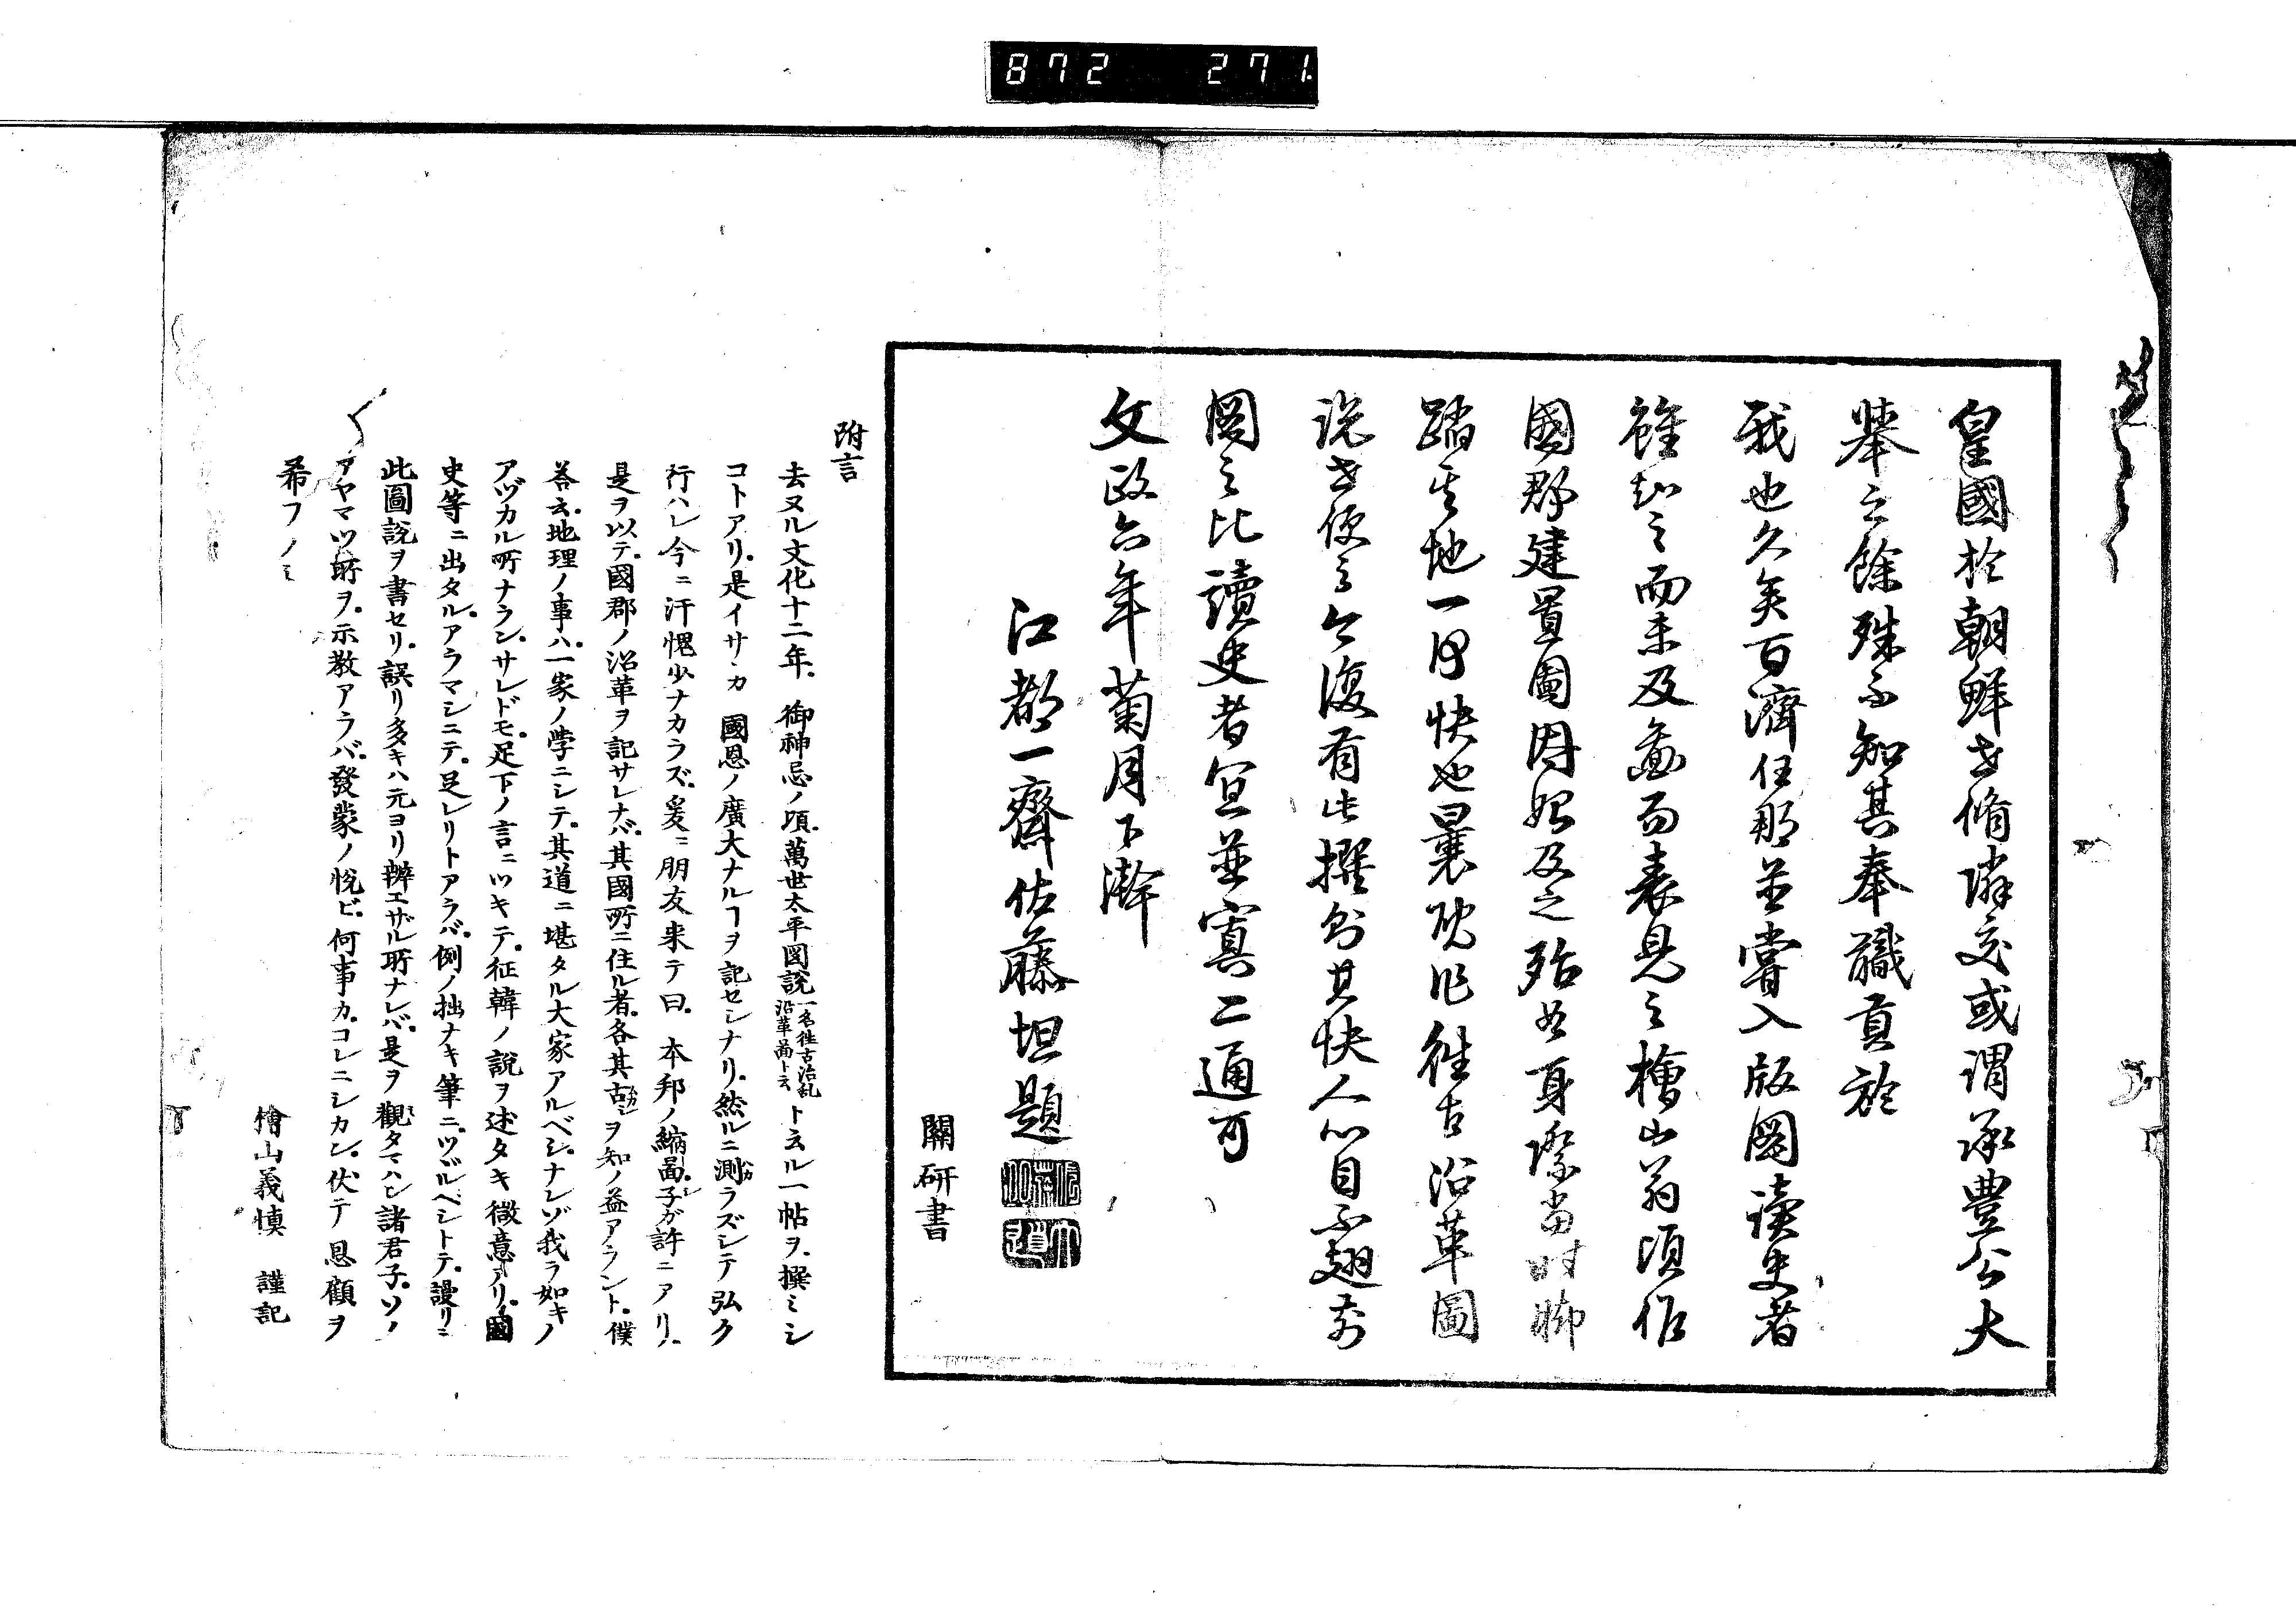 872 271
皇國於朝鮮世脩隣交或謂承豐公大
擧之餘殊不知其奉職貢於
我也久矣百濟任那並嘗入版圖讀史者
雖知之而未及畫而表見之檜山翁頃作
國郡建置圖因始及之殆如身際當時脚
踏其地一何快也曩既作往古沿革圖
説世便之今復有此撰則其快人心目不翅前
圖之比讀史者宜並寘二通可
文政六年菊月下澣
江都一齋佐藤坦題
關研書
附言
去ヌル文化十二年御神忌ノ頃萬世太平図説一名往古治乱沿革啚ト云ト云ル一帖ヲ撰ミシ
コトアリ是イサヽカ國恩ノ廣大ナルヿヲ記セシナリ然ルニ測ラズシテ弘ク
行ハレ今ニ汗愧少ナカラズ爰ニ朋友来テ曰本邦ノ縮啚子ガ許ニアリ
是ヲ以テ國郡ノ沿革ヲ記サレナバ其國所ニ住ル者各其古ヲ知ノ益アラント僕
答云地理ノ事ハ一家ノ学ニシテ其道ニ堪タル大家アルベシナンゾ我ラ如キノ
アヅカル所ナランサレドモ足下ノ言ニツキテ征韓ノ説ヲ述タキ微意アリ國
史等ニ出タルアラマシニテ足レリトアラバ例ノ拙ナキ筆ニツヾルベシトテ謾リニ
此圖説ヲ書セリ誤リ多キハ元ヨリ辨エザル所ナレバ是ヲ觀タマハン諸君子ソノ
アヤマツ所ヲ示教アラバ發蒙ノ悦ビ何事カコレニシカン伏テ恩顧ヲ
希フノミ
檜山義慎 謹記